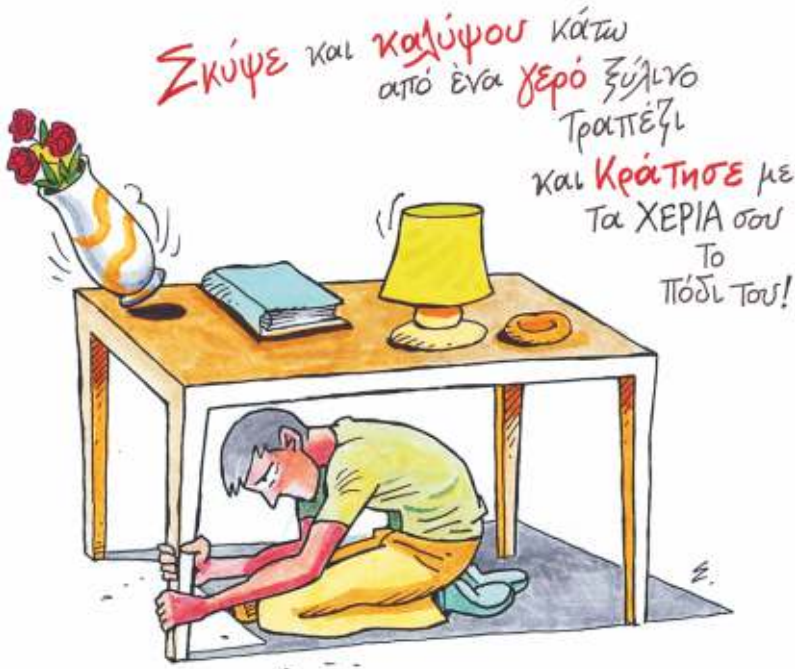 Σκύψε και καλύψου κάτω
από ένα γερό ξύλινο
Τραπέζι
και Κράτησε με
Τα ΧΕΡΙΑ σου
Το
πόδι Του!
Σ.